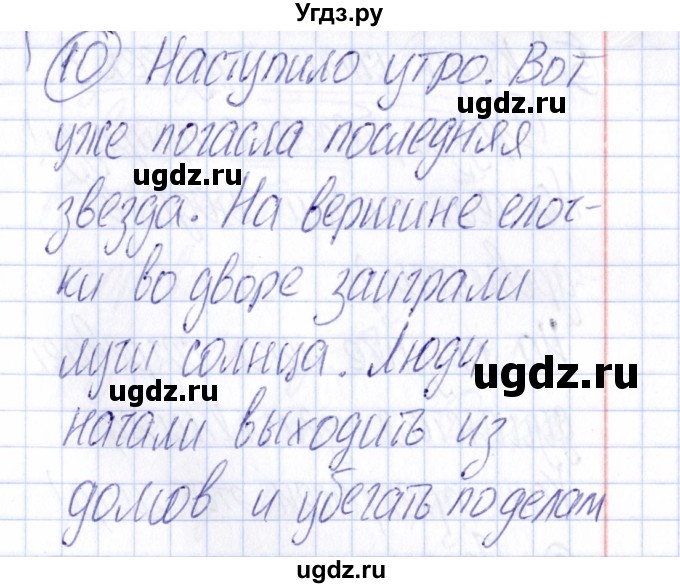 Угдз.ру
10 Наступило утро. Вот
ugdz.ru
уже погасла последняя
ugdz.ru
звезда. На вершине елоч-
ки во дворе заиграли
лучи солнца. Люди
ugdz.ru
ugdz.ru
начали выходить из
домов и убегать по делам
ugdz.ru
ugdz.ru